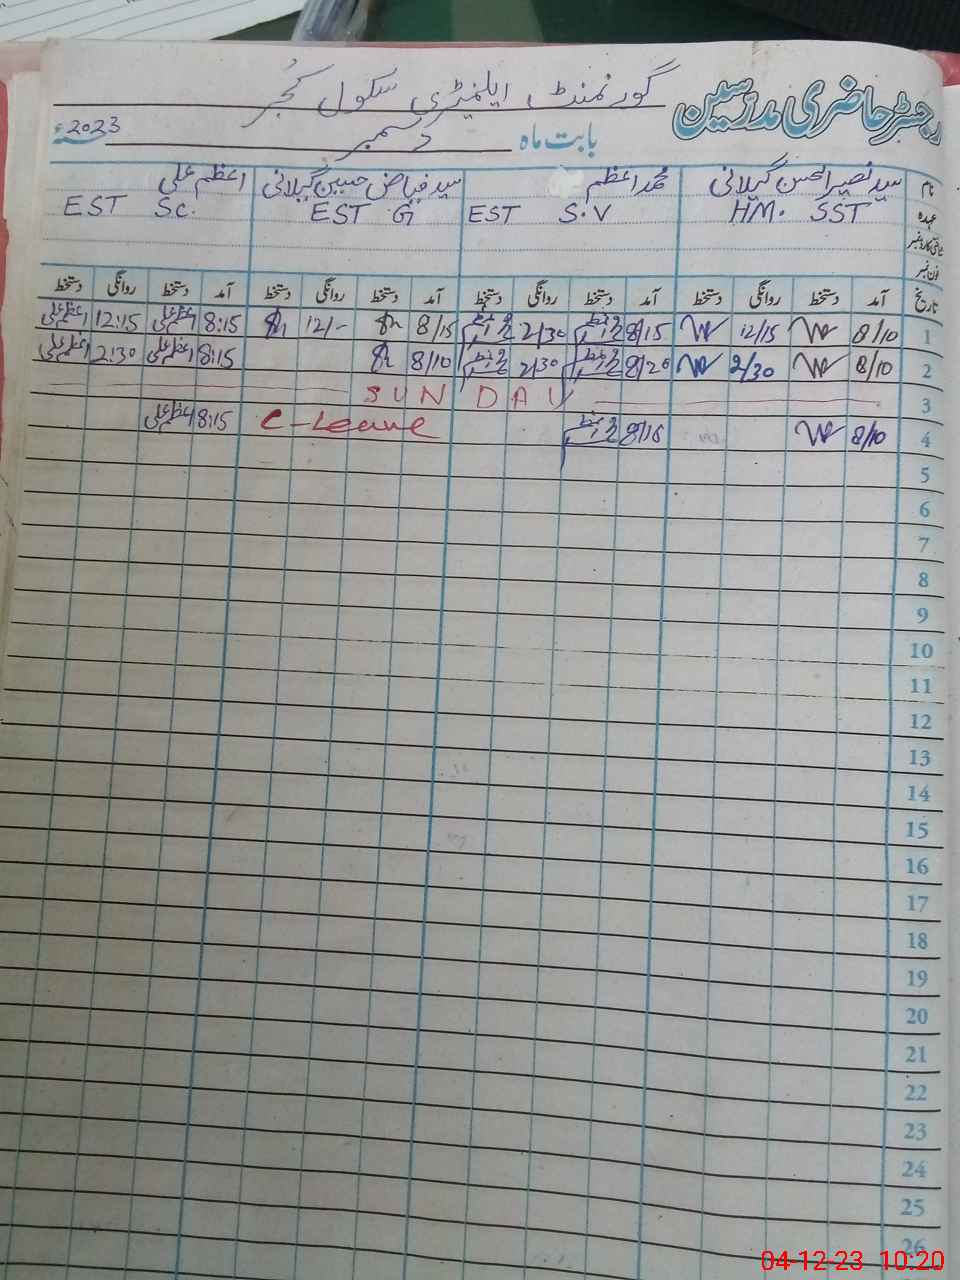 رجسٹر حاضری مدرسین گورنمنٹ ایلیمنٹری سکول گجر
بابت ماہ دسمبر 2023ء
نام سید نصیر الحسن گیلانی محمد اعظم سید فیاض حسین گیلانی اعظم علی
عہدہ HM. SST EST S.V EST G EST Sc.
شناختی کارڈ نمبر
فون نمبر
تاریخ آمد دستخط روانگی دستخط آمد دستخط روانگی دستخط آمد دستخط روانگی دستخط آمد دستخط روانگی دستخط
1 8/10 12/15 8/15 2/30 8/15 12/- 8:15 اعظم علی 12:15 اعظم علی
2 8/10 2/30 8/20 2/30 8/10 8:15 اعظم علی 2:30 اعظم علی
3 SUNDAY
4 8/10 8/15 C-Leave 8:15 اعظم علی
5
6
7
8
9
10
11
12
13
14
15
16
17
18
19
20
21
22
23
24
25
26
04-12-23 10:20